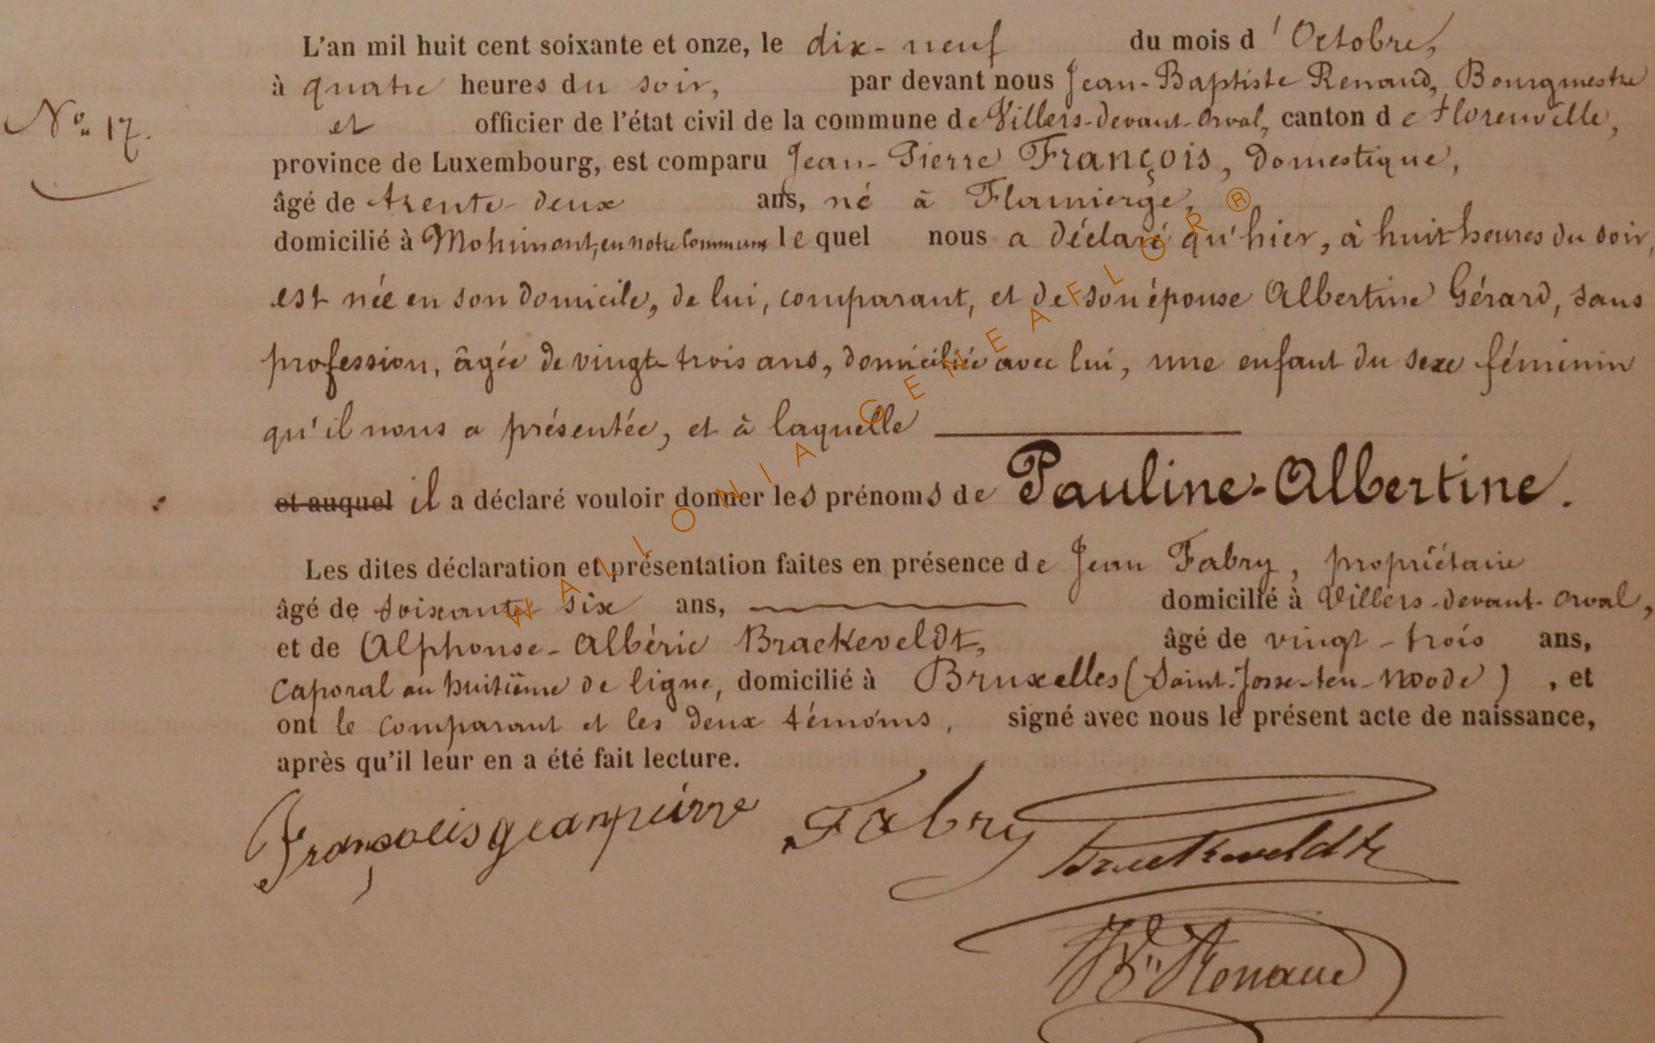 L'an mil huit cent soixante et onze, le dix-neuf du mois d'Octobre,
à quatre heures du soir, par devant nous Jean-Baptiste Renaud, Bourgmestre
N° 17.
et officier de l'état civil de la commune de Villers-devant-Orval, canton de Florenville,
province de Luxembourg, est comparu Jean-Pierre François, Domestique,
âgé de trente-deux ans, né à Flamierge,
domicilié à Mohimont, en notre Commune lequel nous a déclaré qu'hier, à huit heures du soir,
est née en son domicile, de lui, comparant, et de son épouse Albertine Gérard, sans
profession, âgée de vingt-trois ans, domiciliée avec lui, une enfant du sexe féminin
qu'il nous a présentée, et à laquelle
et auquel il a déclaré vouloir donner les prénoms de Pauline-Albertine.
Les dites déclaration et présentation faites en présence de Jean Fabry, propriétaire
âgé de soixante six ans, domicilié à Villers-devant-Orval,
et de Alphonse-Albéric Brackeveldt, âgé de vingt-trois ans,
Caporal au huitième de ligne, domicilié à Bruxelles (Saint-Josse-ten-Noode), et
ont le comparant et les deux témoins, signé avec nous le présent acte de naissance,
après qu'il leur en a été fait lecture.
François jeanpierre Fabry
Renaud
WALLONIA GENEAFLOR ®